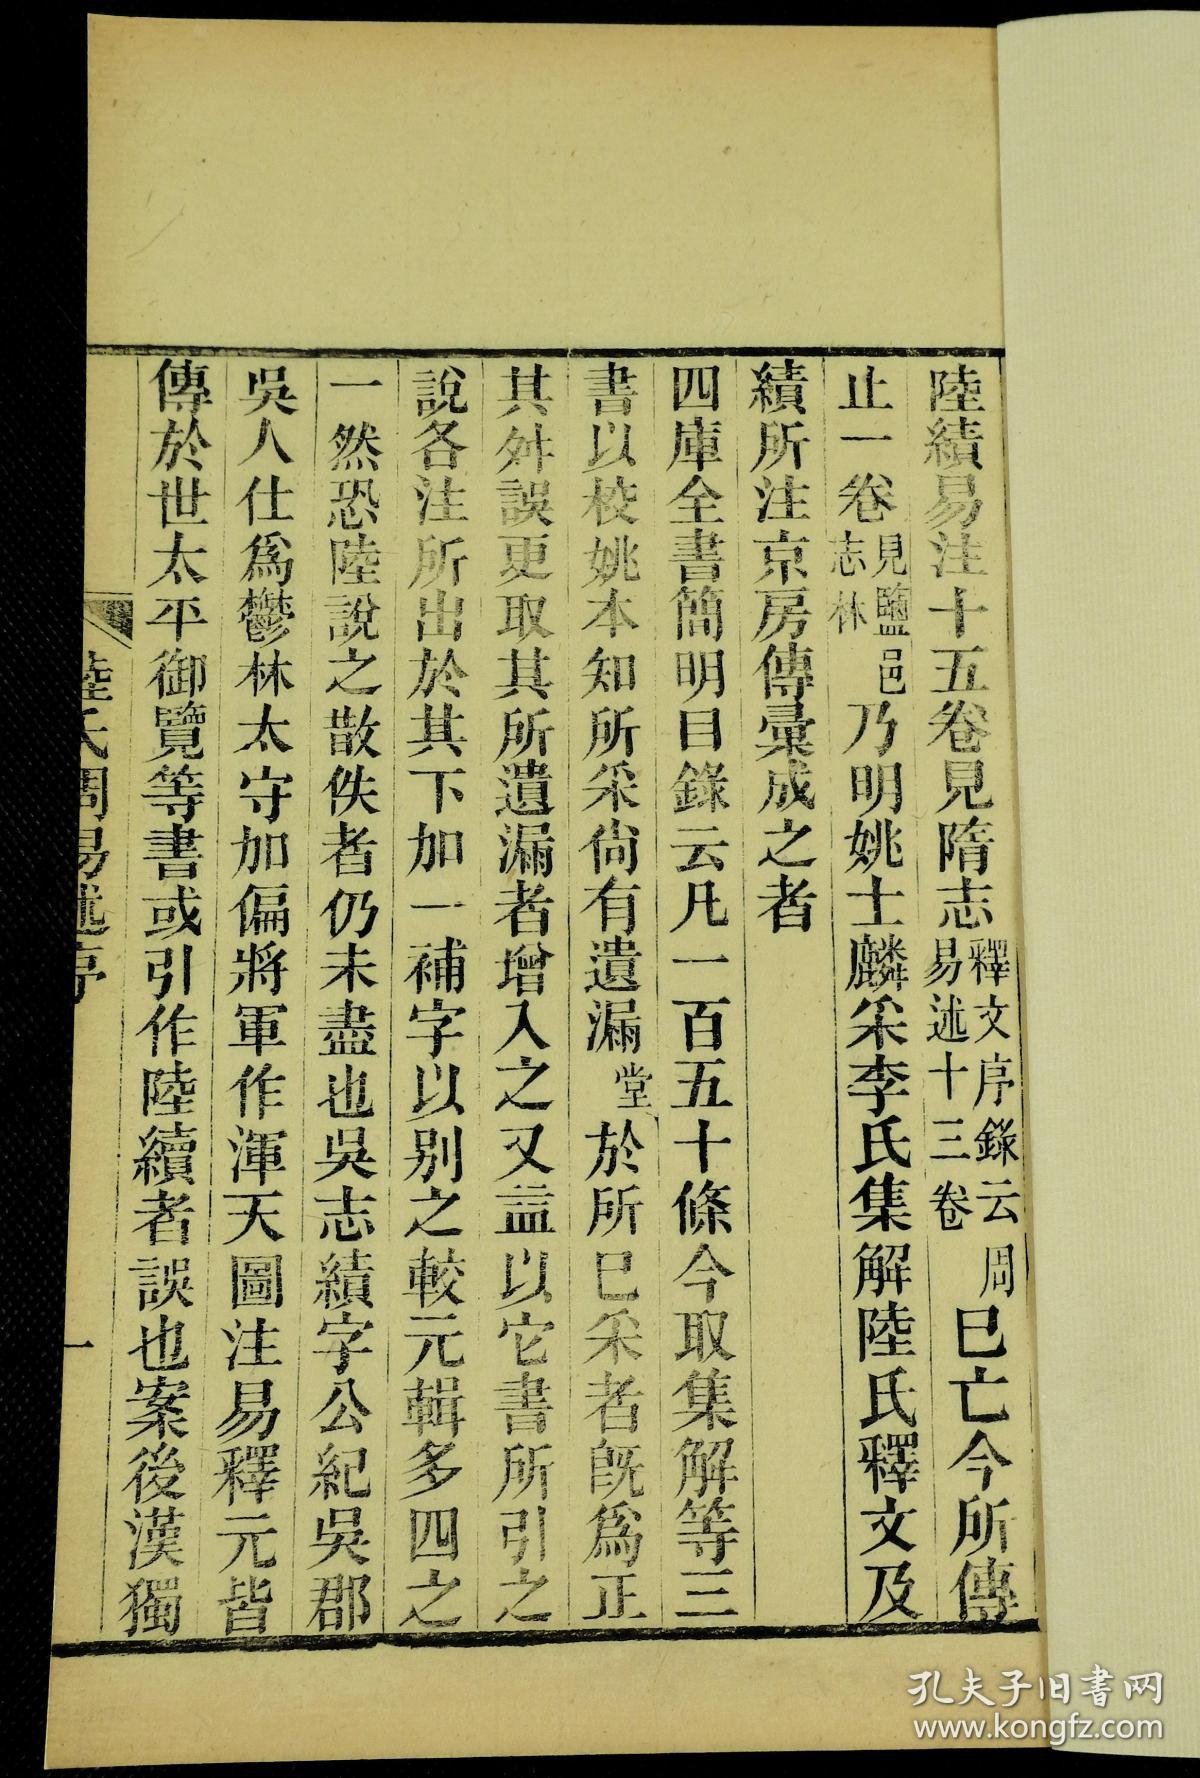 陸績易注十五卷見隋志釋文序錄云周易述十三卷已亡今所傳
止一卷見鹽邑志林乃明姚士麟采李氏集解陸氏釋文及
績所注京房傳彙成之者
四庫全書簡明目錄云凡一百五十條今取集解等三
書以校姚本知所采尙有遺漏堂於所已采者旣爲正
其舛誤更取其所遺漏者增入之又益以它書所引之
說各注所出於其下加一補字以別之較元輯多四之
一然恐陸說之散佚者仍未盡也吳志績字公紀吳郡
吳人仕爲鬱林太守加偏將軍作渾天圖注易釋元皆
傳於世太平御覽等書或引作陸續者誤也案後漢獨
陸氏周易述序
一
孔夫子旧書网
www.kongfz.com